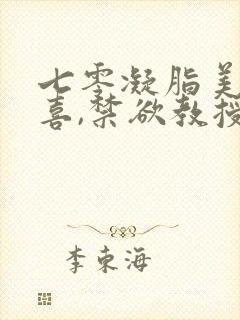 七零凝脂美
喜,禁欲教授
李东海